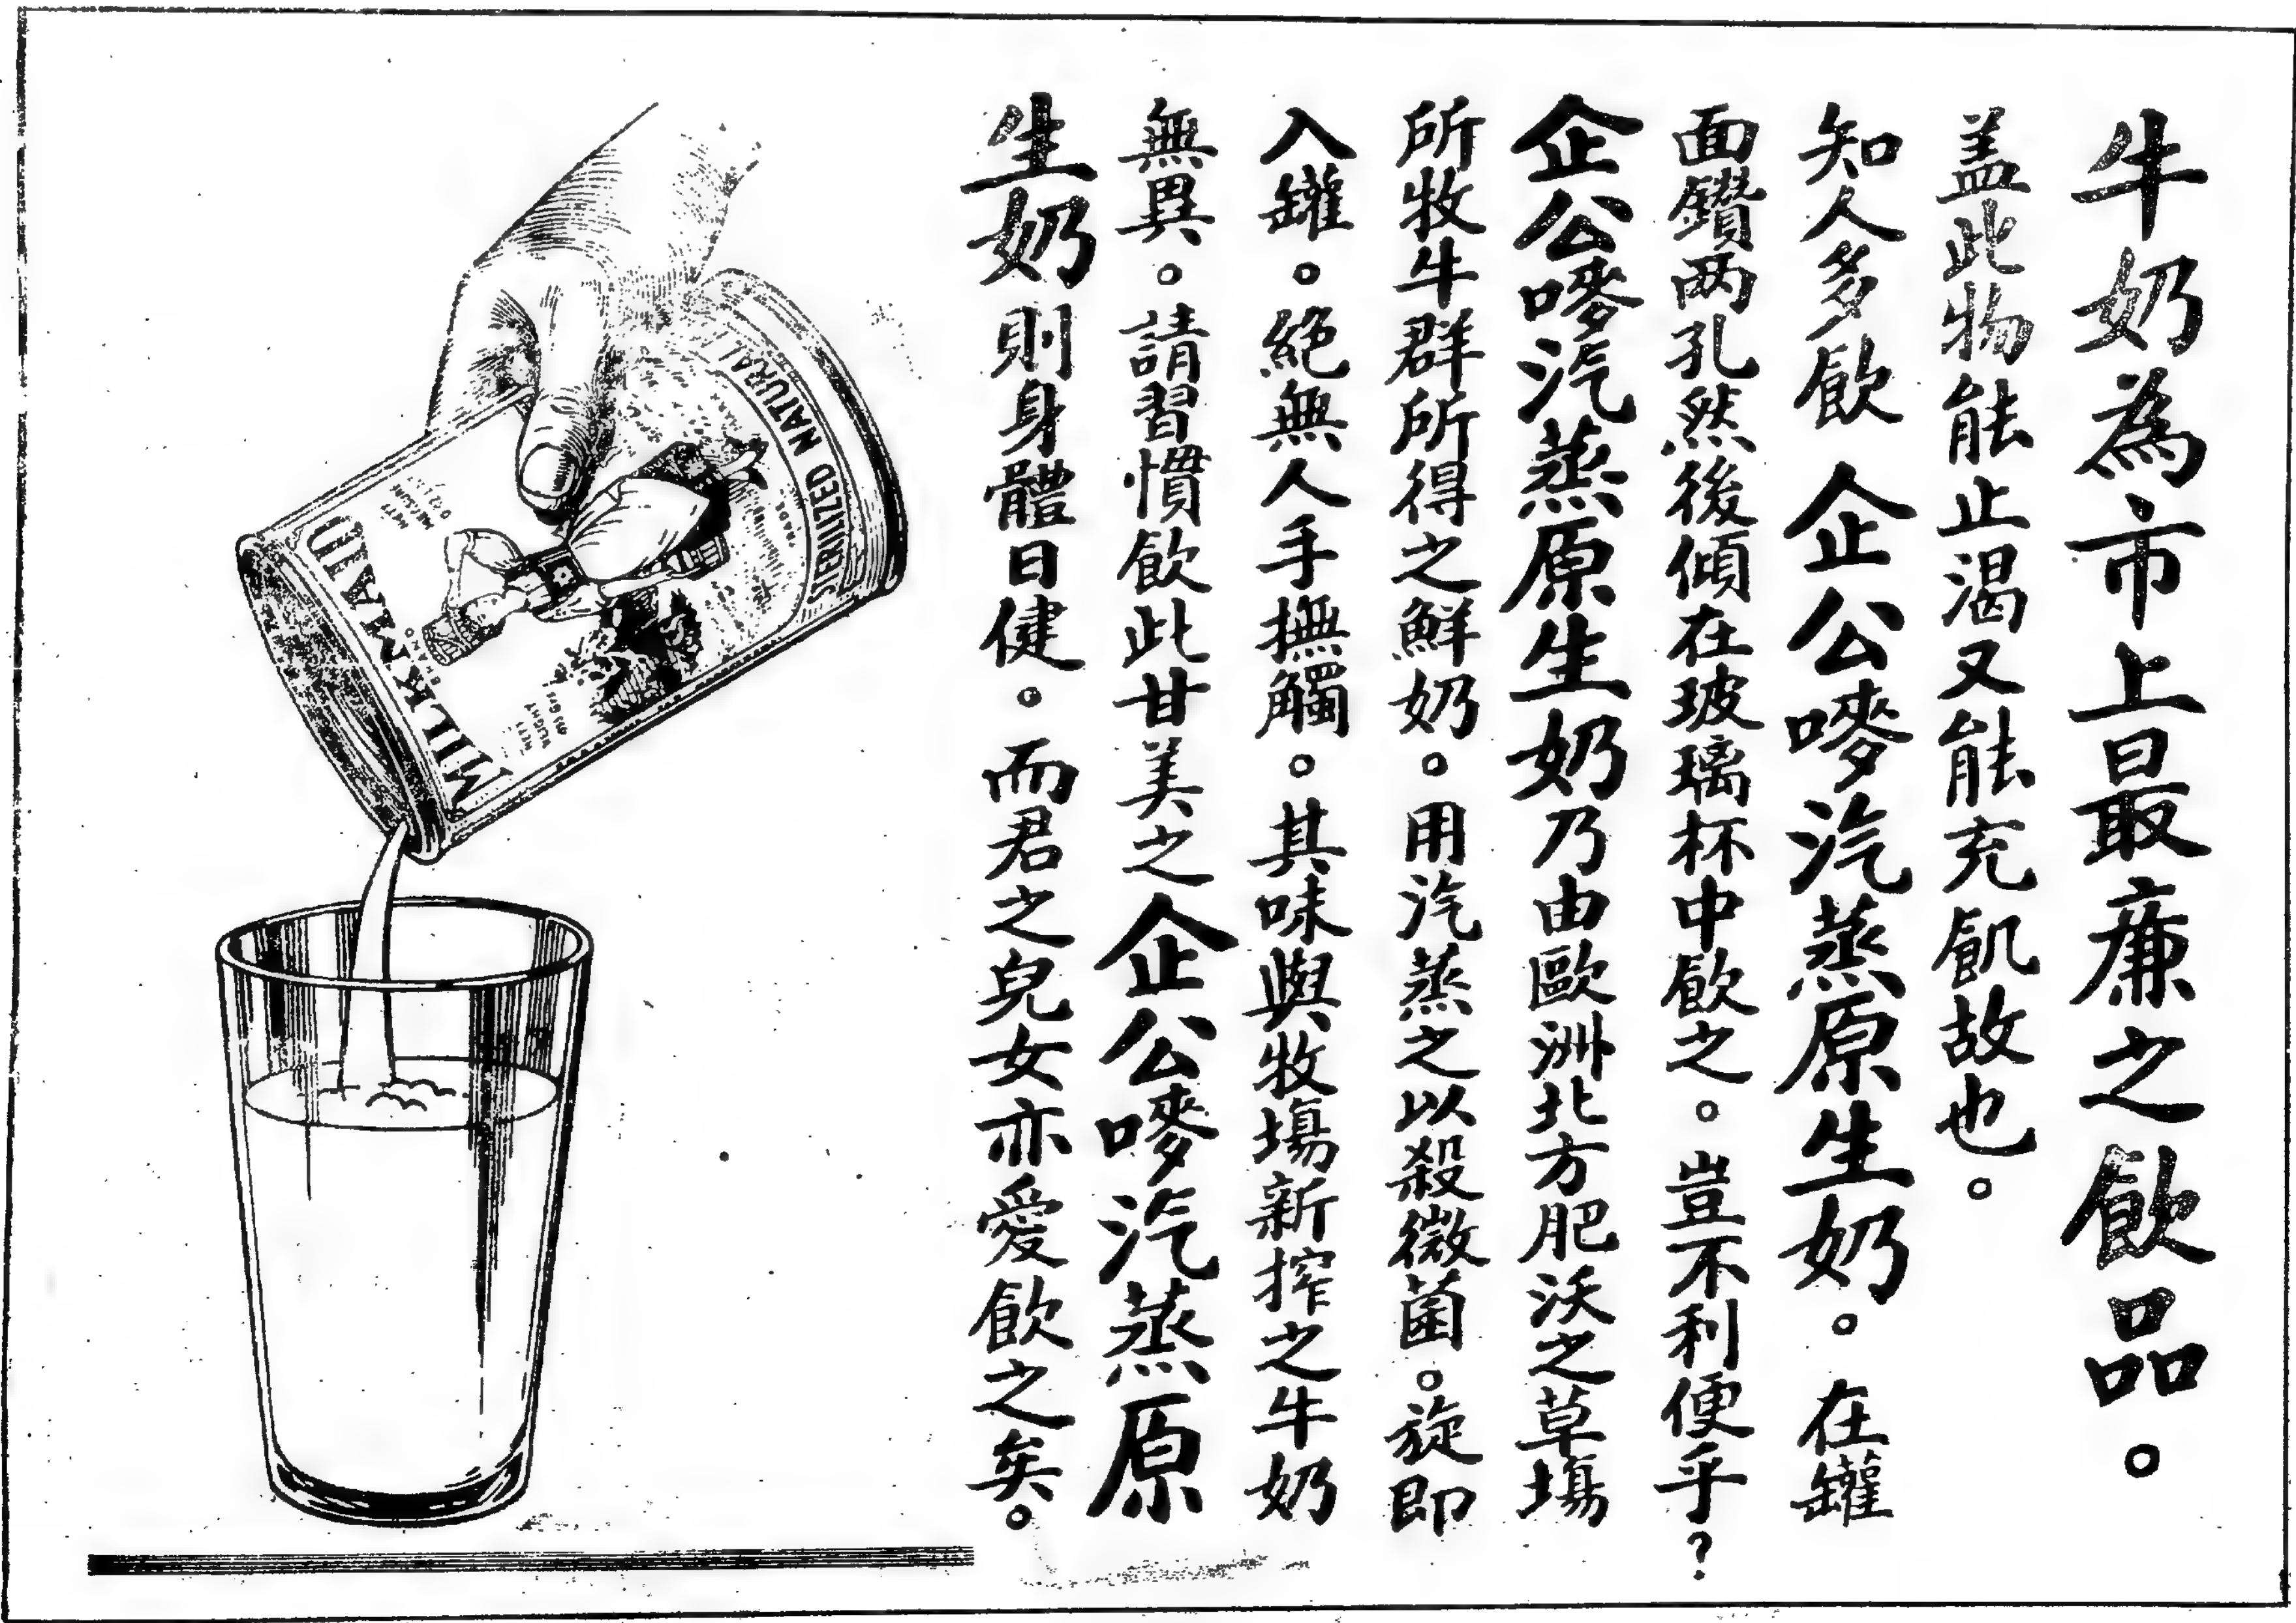 牛奶為市上最廉之飲品。
盖此物能止渴又能充飢故也。
知人多飲企公嘜汽蒸原生奶。在罐
面鑽两孔然後傾在玻璃杯中飲之。豈不利便乎?
企公嘜汽蒸原生奶乃由歐洲北方肥沃之草塲
所牧牛群所得之鮮奶。用汽蒸之以殺微菌。旋即
入罐。絕無人手撫觸。其味與牧塲新搾之牛奶
無異。請習慣飲此甘美之企公嘜汽蒸原
生奶則身體日健。而君之兒女亦愛飲之矣。
MILKMAID
STERILIZED NATURAL